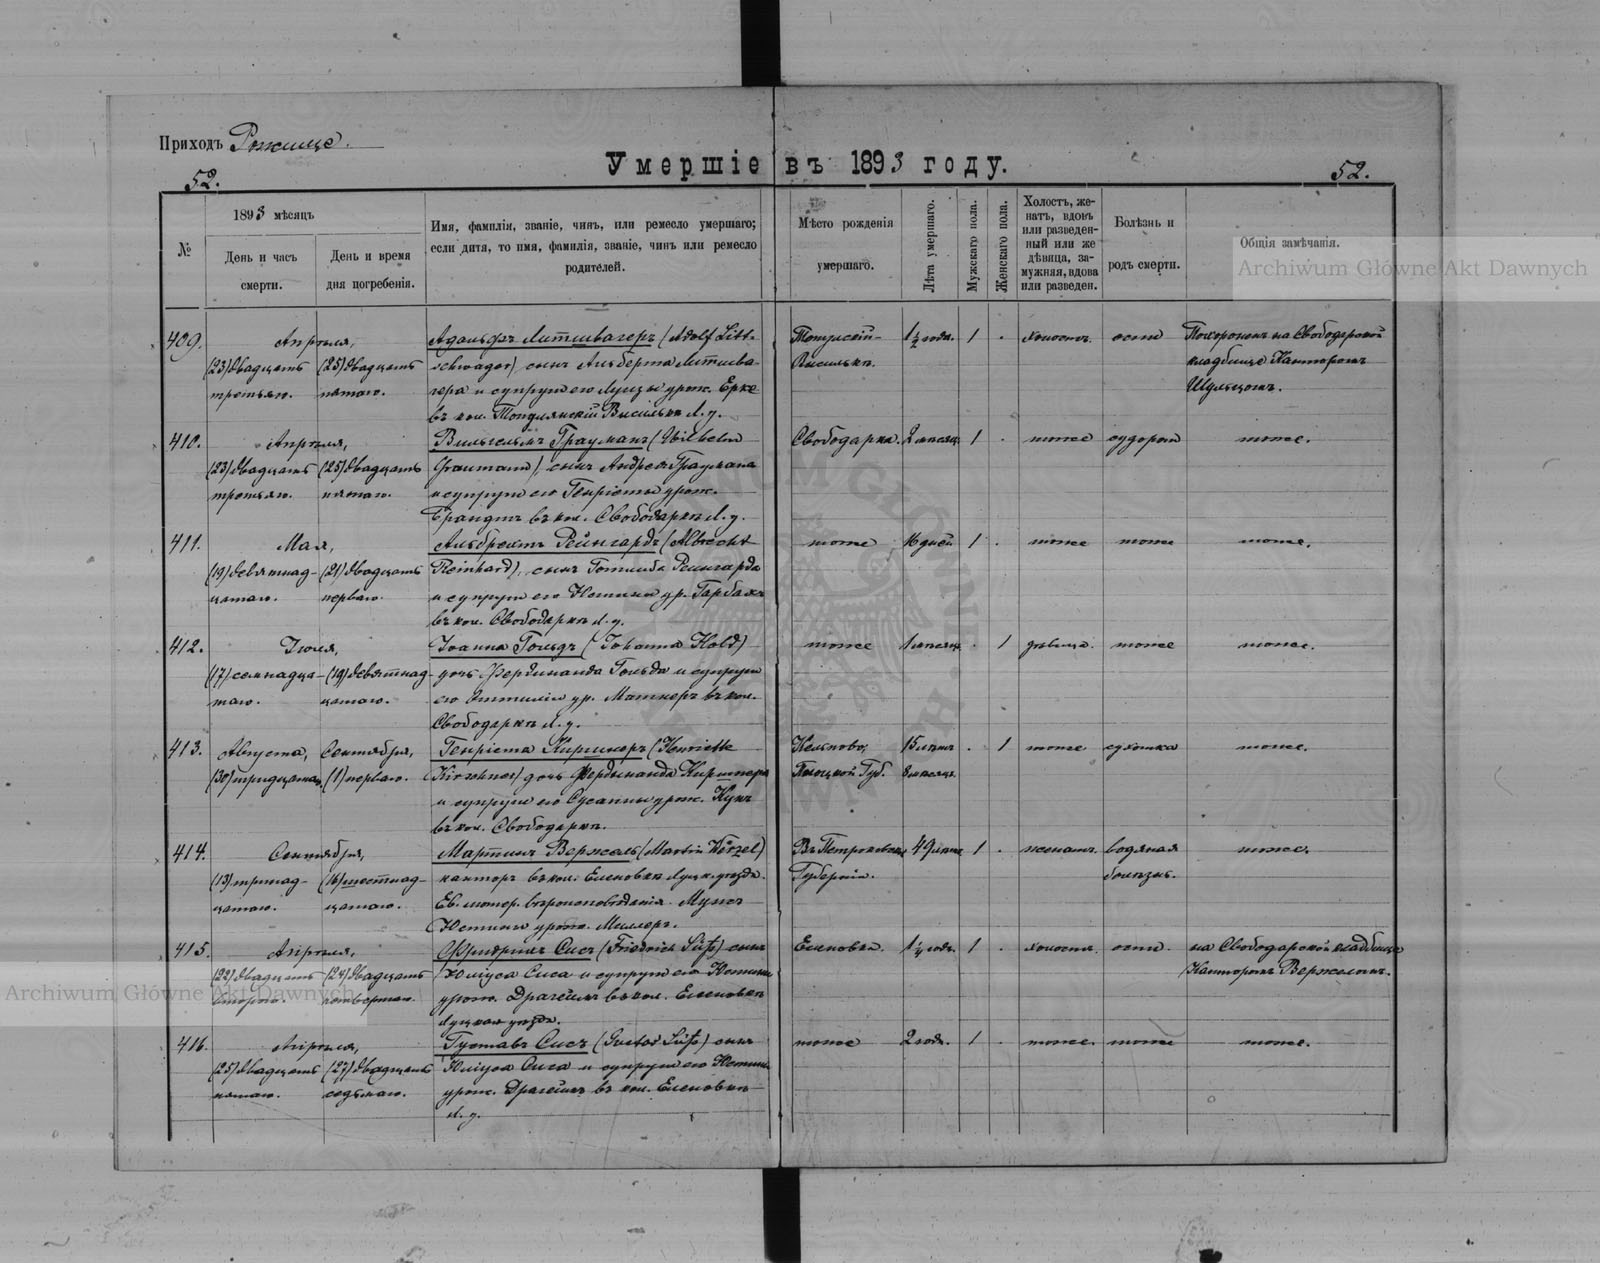 Приходъ Рожище.
Умершіе въ 1893 году.
52.
52.
№
1893 мѣсяцъ
День и часъ смерти.
День и время дня погребенія.
Имя, фамилія, званіе, чинъ, или ремесло умершаго;
если дитя, то имя, фамилія, званіе, чинъ или ремесло
родителей.
Мѣсто рожденія
умершаго.
Лѣта умершаго.
Мужскаго пола.
Женскаго пола.
Холостъ, же-
натъ, вдовъ
или разведен-
ный или же
дѣвица, за-
мужняя, вдова
или разведен.
Болѣзнь и
родъ смерти.
Общія замѣчанія.
Archiwum Główne Akt Dawnych
409. Апрѣля, Адольфъ Литтшвагеръ (Adolf Litt- 1½ года. 1 . холостъ. оспа Похороненъ на Свободарской
(23) двадцать (25) двадцать schwager) сынъ Альберта Литтшва- кладбище Канторомъ
третьяго. пятаго. гера и супруги его Луизы урож. Ерке Шульцомъ.
въ кол. Л. у.
410. Апрѣля, Вильгельмъ Грауманъ (Wilhelm Свободарка. 2 мѣсяц. 1 . тоже судороги тоже.
(23) двадцать (25) двадцать Graumann), сынъ Андрея Граумана
третьяго. пятаго. и супруги его Генріеты урож.
Брандтъ въ кол. Свободаркѣ Л. у.
411. Мая, Альбрехтъ Рейнгардъ (Albrecht тоже 16 дней 1 . тоже тоже тоже.
(19) девятнад- (21) двадцать Reinhard), сынъ Готлиба Рейнгарда
цатаго. перваго. и супруги его Юстины ур. Гарбахъ
въ кол. Свободаркѣ Л. у.
412. Іюля, Іоанна Гольдъ (Johanna Hold) тоже 1 мѣсяц. . 1 дѣвица. тоже тоже.
(17) семнадца- (19) девятнад- дочь Фердинанда Гольда и супруги
таго. цатаго. его Эмиліи ур. въ кол.
Свободаркѣ Л. у.
413. Августа, Сентября, Генріета Киршнеръ (Henriette 15 лѣтъ . 1 тоже сухотка тоже.
(30) тридцатаго. (1) перваго. Kirschner) дочь Фердинанда Киршнера Плоцкой Губ. 8 мѣсяц.
и супруги его Сусанны урож. Кунъ
въ кол. Свободаркѣ.
414. Сентября, Мартинъ Вержель (Martin Wërzel) Въ Петроковской 49 лѣтъ 1 . женатъ. водяная тоже.
(13) тринад- (16) шестнад- канторъ въ кол. Еленовкѣ Луцк. уѣзда. Губерніи. болѣзнь.
цатаго. цатаго. Ев. лютер. вѣроисповѣданія. Мужъ
Юстины урож. Миллеръ.
415. Апрѣля, Фридрихъ Сисъ (Friedrich Süß) сынъ Еленовка. 1¼ годъ. 1 . холостъ. оспа. на Свободарской кладбище
(22) двадцать (24) двадцать Юліуса Сиса и супруги его Юстины Канторомъ Вержелемъ.
втораго. четвертаго. урож. Драгеймъ въ кол. Еленовкѣ
Луцкаго уѣзда.
Archiwum Główne Akt Dawnych
416. Апрѣля, Густавъ Сисъ (Gustav Süß) сынъ тоже 2 год. 1 . тоже. тоже тоже.
(25) двадцать (27) двадцать Юліуса Сиса и супруги его Юстины
пятаго. седьмаго. урож. Драгеймъ въ кол. Еленовкѣ
Л. у.